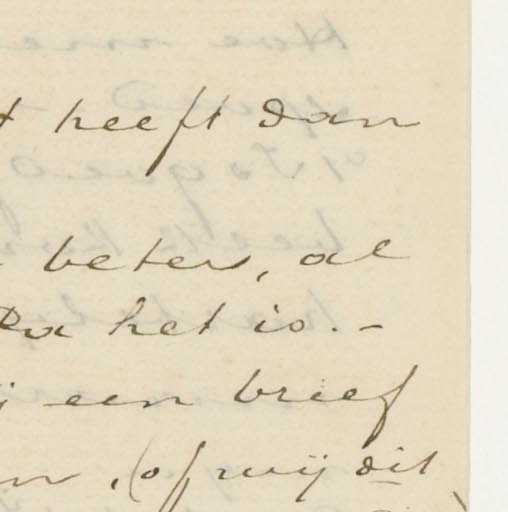 heeft dan
beter, al
het is. -
een brief
(of wij dit